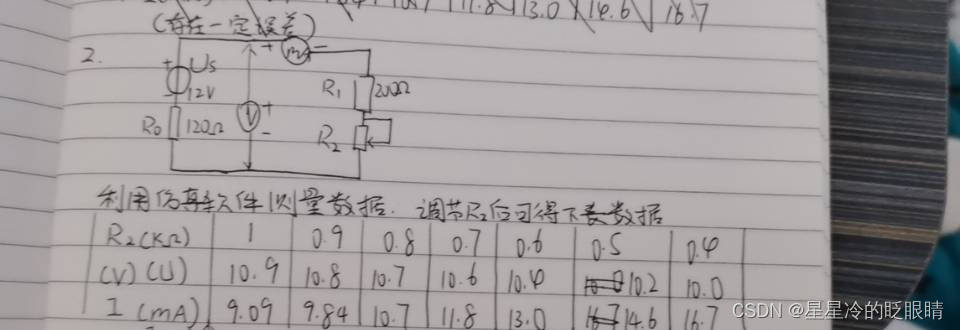 11.8 13.0 14.6 16.7
(存在一定误差)
2.
+ mA -
+ Us
12V
R1 200Ω
R0 120Ω
V + -
R2
利用仿真软件测量数据. 调节R2后可得下表数据
R2(KΩ) 1 0.9 0.8 0.7 0.6 0.5 0.4
(V)(U) 10.9 10.8 10.7 10.6 10.4 10.2 10.0
I (mA) 9.09 9.84 10.7 11.8 13.0 14.6 16.7
CSDN @星星冷的眨眼睛